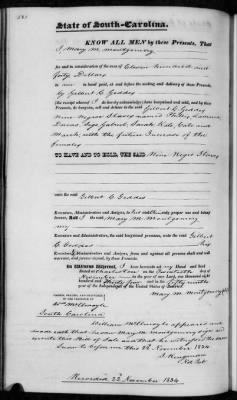 State of South-Carolina.
KNOW ALL MEN by these Presents, That
I Mary M. Montgomery
for and in consideration of the sum of Eleven hundred and
forty Dollars
to me in hand paid, at and before the sealing and delivery of these Presents,
by Gilbert C. Geddes
(the receipt whereof I do hereby acknowledge) have bargained and sold, and by these
Presents, do bargain, sell and deliver to the said Gilbert C. Geddes
Nine Negroes Slaves named Phillis,
Sarah, Kate, and
March, with the future Increase of the
females
TO HAVE AND TO HOLD, THE SAID Nine Negro Slaves
unto the said Gilbert C. Geddes
Executors, Administrators and Assigns, to his and their only proper use and behoof
forever. And I the said Mary M. Montgomery
my
Executors and Administrators, the said bargained premises, unto the said Gilbert
C. Geddes his
Executors, Administrators and Assigns, from and against all persons shall and will
warrant, and forever defend, by these Presents.
In Witness Whereof, I have hereunto set my Hand and Seal
Dated at Charleston on the Twentieth day of
November in the year of our Lord, one thousand eight
hundred and thirty four and in the fifty ninth
year of the Independence of the United States of America.
Mary M. Montgomery
SIGNED, SEALED, AND DELIVERED
IN THE PRESENCE OF
South Carolina
William appeared and
made oath that he saw Mary M. Montgomery sign and
execute this Bill of Sale and that he witnessed the same
Sworn to before me this 22 November 1834
Recorded 22nd November 1834